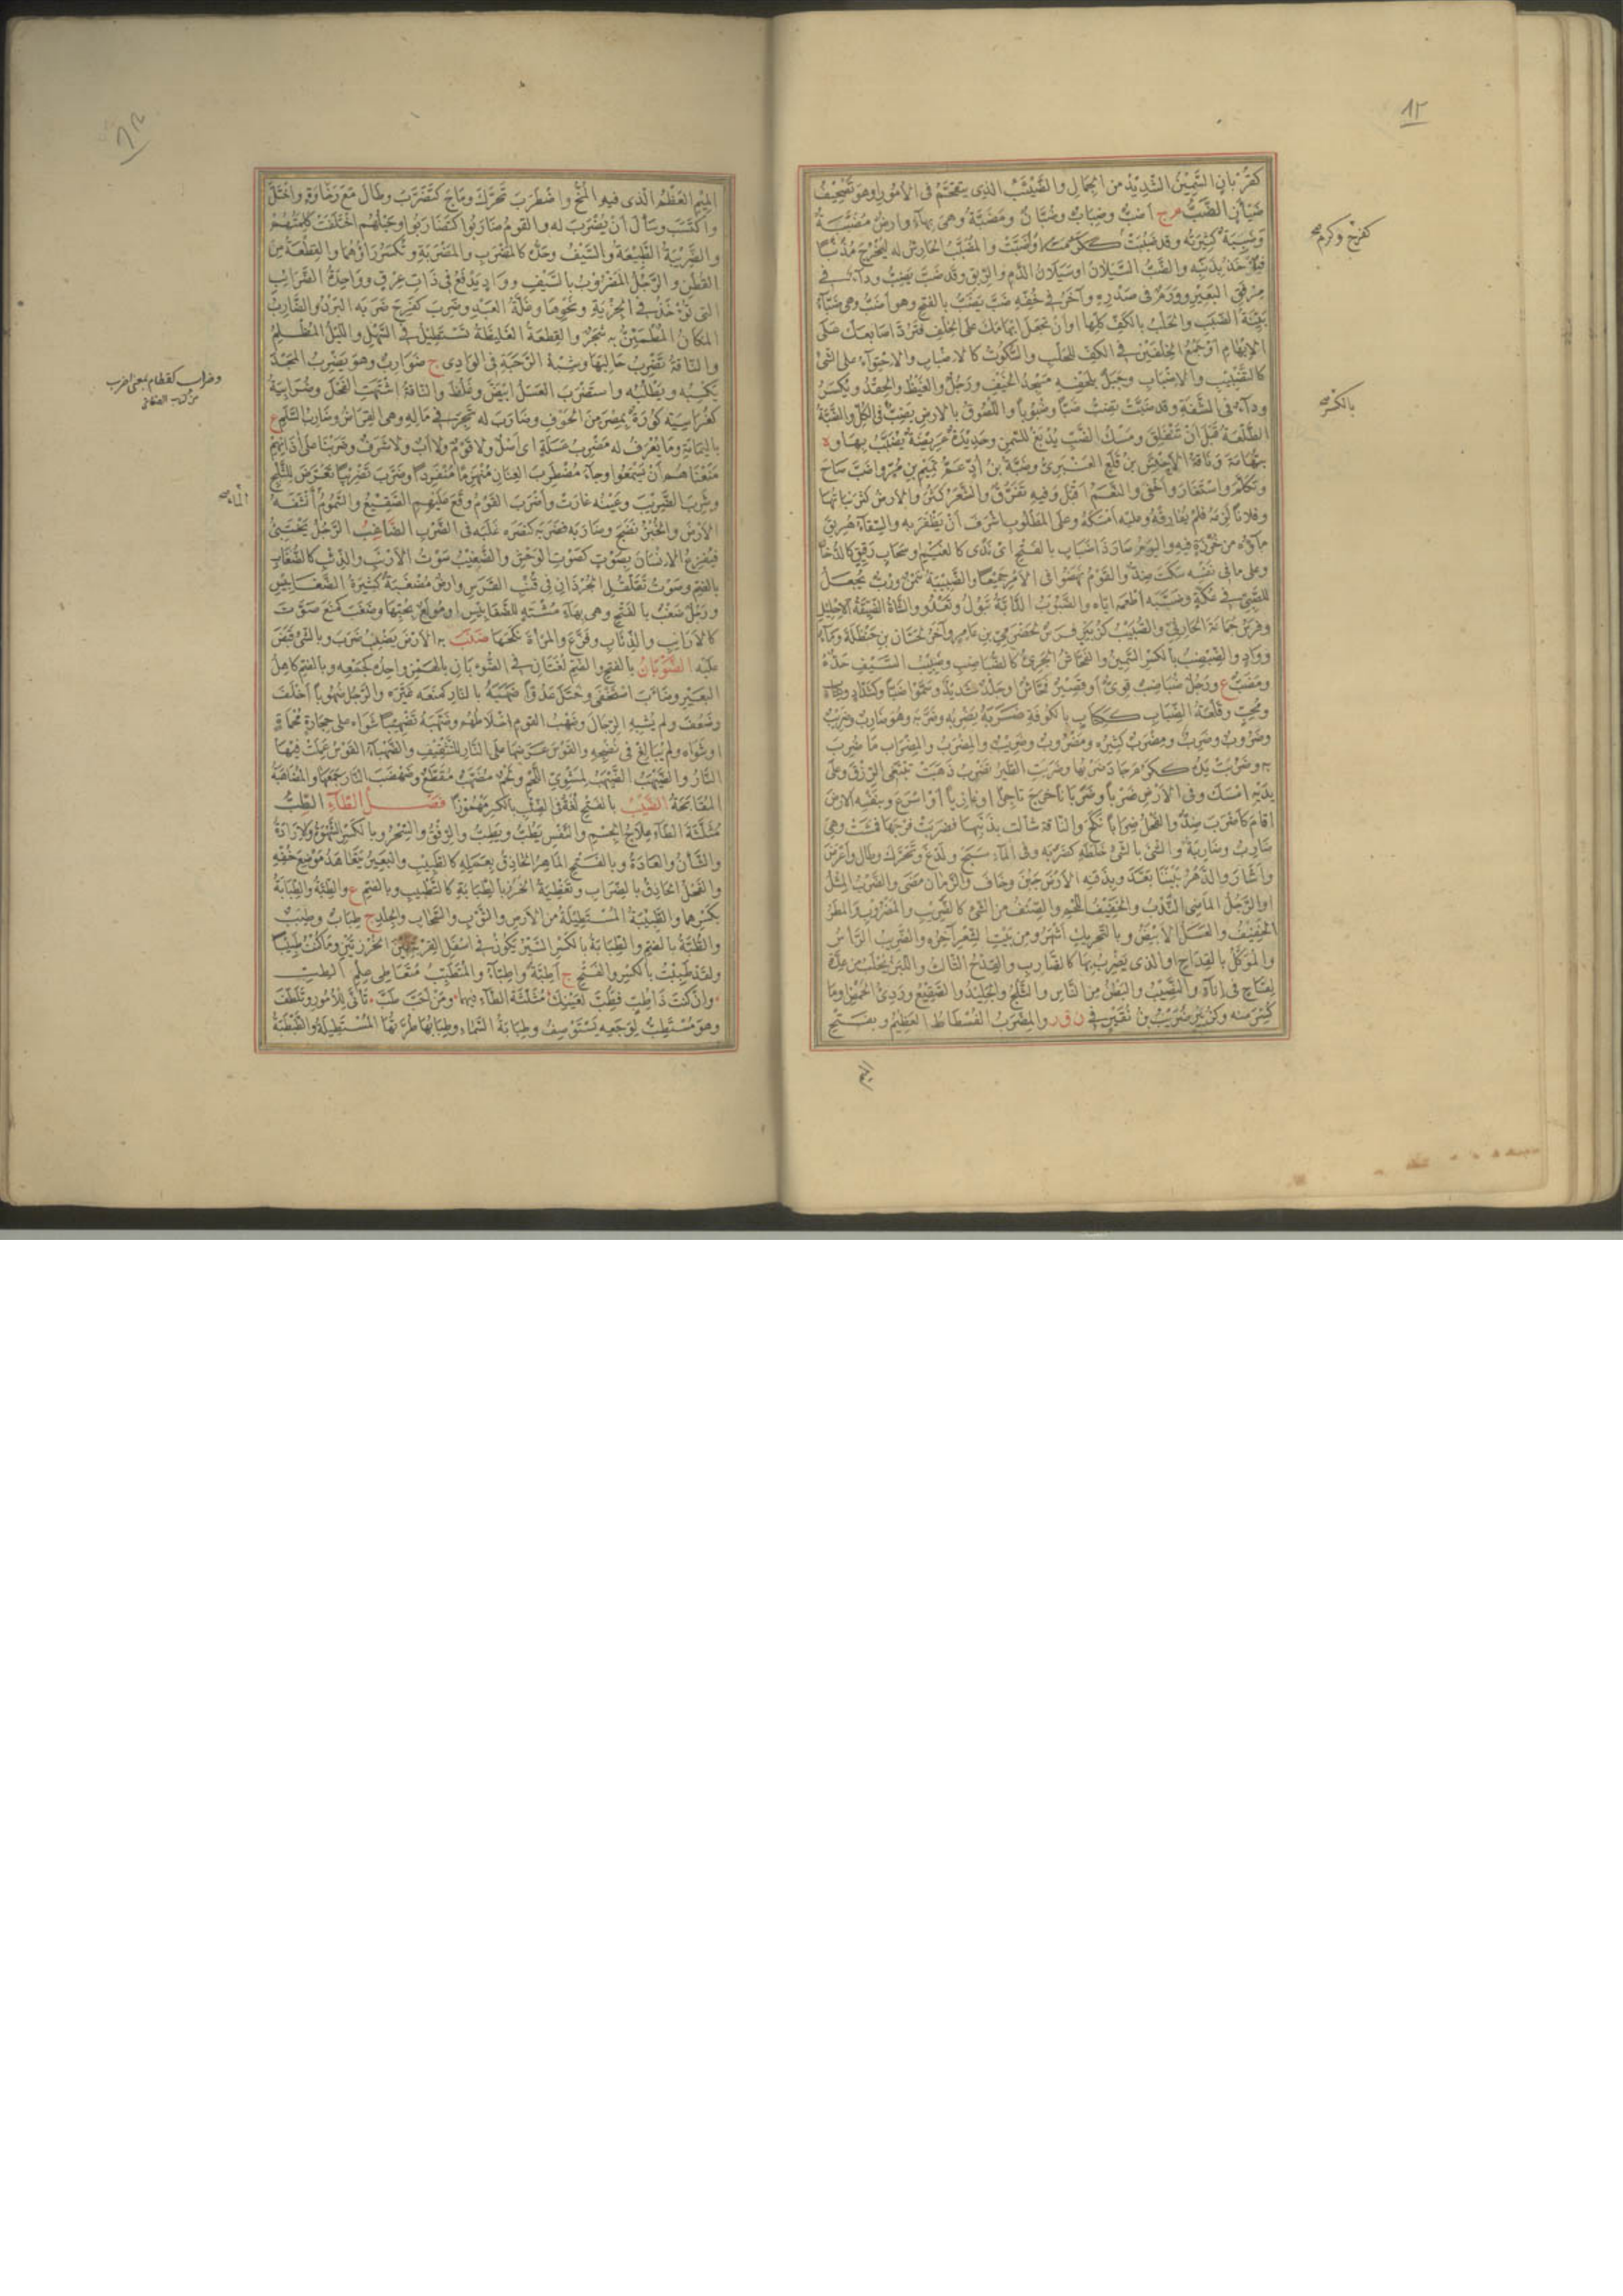 ١٢
كقُرْبانٍ السَّمِينُ الشَّدِيدُ من الجِمَالِ والضَّيْثَمُ الذي يتقحم في الأمُورِ وهو تَصْحِيفُ
ضَيْأَنٍ الضَّبُّ م ج أضُبٌّ وضِبَابٌ وضُبَّانٌ ومَضَبَّةٌ وهي بهآءٍ وارضٌ مُضِبَّةٌ
وضَبِبَةٌ كَثِيرَتُه وقد ضَبِبَتْ ككَرُمَ وأضَبَّتْ والمُضَبِّبُ الحَارِشُ له لِيَخْرُجَ مُذَنِّبًا
فيأخُذَ بِذَنَبِه والضَّبُّ السَّيَلَانُ او سَيَلَانُ الدَّمِ والرِّيقِ وقد ضَبَّ يَضِبُّ ودآءٌ في
مِرْفَقِ البَعِيرِ ووَرَمٌ في صَدْرِه وآخَرُ في خُفِّه ضَبَّ يَضَبُّ بالفتح وهو أضَبُّ وهي ضَبَّآءُ
بَيِّنَةُ الضَّبَبِ والحَلْبُ بالكَفِّ كُلِّها او أنْ تجعَلَ إبْهَامَكَ على الخِلْفِ فَتَرُدَّ أصَابِعَكَ على
الإبْهَامِ او جَمْعُ الخِلْفَيْنِ في الكَفِّ للحَلْبِ والسُّكُوتُ كالإضْبَابِ والاحْتِوَآءُ على الشَّئِ
كالتَّضْبِيبِ والإضْبَابِ وجَبَلٌ بِلِحْفِه مَسْجِدُ الخَيْفِ ورَجُلٌ والغَيْظُ والحِقْدُ ويُكْسَرُ
ودآءٌ في الشَّفَةِ وقد ضَبَّتْ تَضِبُّ ضَبًّا وضُبُوبًا واللُّصُوقُ بالأرضِ يَضِبُّ في الكُلِّ والضَّبَّةُ
الطَّلْعَةُ قَبْلَ أنْ تَنْفَلِقَ ومَسْكُ الضَّبِّ يُدْبَغُ للسَّمْنِ وحَدِيدَةٌ عَرِيضَةٌ يُضَبَّبُ بها وة
بِتِهَامَةَ ونَاقَةُ الأحْبَشِ بنِ قَلَعٍ العَنْبَرِيِّ وضَبَّةُ بنُ أُدٍّ عَمُّ تَمِيمِ بنِ مُرٍّ واضَبَّ صَاحَ
وتكَلَّمَ واسْتَغَارَ وأخْفَى والنَّعَمُ أقْبَلَ وفيه تَفَرُّقٌ والشَّعَرُ كَثُرَ والأرضُ كَثُرَ نَبَاتُها
وفلاناً لَزِمَهُ فلم يُفَارِقْه وعليه أمْسَكَهُ وعلى المَطْلُوبِ أشْرَفَ أنْ يَظْفَرَ به والسِّقَآءُ هُرِيقَ
مآؤُه من خُرْزَةٍ فيه واليَوْمُ صَارَ ذَا ضَبَابٍ بالفَتْحِ اى نَدًى كالغَيْمِ او سَحَابٍ رَقِيقٍ كالدُّخَانِ
وعلى ما في نَفْسِه سَكَتَ ضِدٌّ والقَوْمُ نَهَضُوا في الأمْرِ جَمِيعًا والضَّبِيبَةُ سَمْنٌ ورُبٌّ يُجْعَلُ
للصَّبِيِّ في عُكَّةٍ وضَبَّبَه أطْعَمَه ايّاه والضَّبُوبُ الدَّابَّةُ تَبُولُ وتَعْدُو والشَّاةُ الضَّيِّقَةُ الإحْلِيلِ
وفَرَسُ جُمَانَةَ الحَارِثِيِّ والضُّبَيْبُ كزُبَيْرٍ فَرَسٌ لحَضْرَمِيِّ بنِ عَامِرٍ وآخَرُ لحَسَّانَ بنِ حَنْظَلَةَ ومآءٌ
ووَادٍ والضِّبْضِبُ بالكَسْرِ السَّمِينُ والفَحَّاشُ الجَرِيءُ كالضُّبَاضِبِ وضَبِيبُ السَّيْفِ حَدُّهُ
ومَضَبٌّ ع ورَجُلٌ ضُبَاضِبٌ قَوِيٌّ أو قَصِيرٌ فَحَّاشٌ او جَلْدٌ شَدِيدٌ وسَمَّوْا ضَبًّا وكشَدَّادٍ وكِتَابٍ
ومُحِبٍّ وقَلْعَةُ الضِّبَابِ ككِتَابٍ بالكُوفَةِ ضَرَبَهُ يَضْرِبُه وضَرَّبَه وهو ضَارِبٌ وضَرِيبٌ
وضَرُوبٌ وضَرِبٌ ومِضْرَبٌ كَثِيرُه ومَضْرُوبٌ وضَرِيبٌ والمِضْرَبُ والمِضْرَابُ مَا ضُرِبَ
به وضَرُبَتْ يَدُهُ ككَرُمَ جَادَ ضَرْبُها وضَرَبَتِ الطَّيْرُ تَضْرِبُ ذَهَبَتْ تَبْتَغِي الرِّزْقَ وعلى
يَدَيْهِ امْسَكَ وفي الأرْضِ ضَرْبًا وضَرَبَانًا خَرَجَ تَاجِرًا او غَازِيًا أوْ اسْرَعَ وبنَفْسِهِ الأرضَ
أقَامَ كأضْرَبَ ضِدٌّ والفَحْلُ ضِرَابًا نَكَحَ والنَاقَةُ شَالَتْ بذَنَبِها فضَرَبَتْ فَرْجَهَا فمَشَتْ وهي
ضَارِبٌ وضَارِبَةٌ والشَّيْءَ بالشَّيْءِ خَلَطَهُ كضَرَّبَه وفي المَآءِ سَبَحَ ولَدَغَ وتَحَرَّكَ وطَالَ وأعْرَضَ
وأشَارَ والدَّهْرُ بَيْنَنَا بَعَّدَ وبذَقَنِهِ الأرْضَ جَبُنَ وخَافَ والزَّمَانُ مَضَى والضَّرْبُ المِثْلُ
اوالرَّجُلُ المَاضِي النَّدْبُ والخَفِيفُ اللَّحْمِ والصِّنْفُ من الشَّيْءِ كالضَّرِيبِ والمَضْرُوبِ والمَطَرُ
الخَفِيفُ والعَسَلُ الأبْيَضُ وبالتَّحْرِيكِ أشْهَرُ ومن بَيْتِ الشِّعْرِ آخِرُهُ والضَّرِيبُ الرَّأْسُ
والمُوَكَّلُ بالقِدَاحِ اوالذي يَضْرِبُ بها كالضَّارِبِ والقِدْحُ الثَّالِثُ واللَّبَنُ يُحْلَبُ من عِدَّةِ
لِقَاحٍ في إنَآءٍ والنَّصِيبُ والبَطْنُ من النَّاسِ والثَّلْجُ والجَلِيدُ والصَّقِيعُ ورَدِيُّ الحَمْضِ وما
كُسِرَ منه وكزُبَيْرٍ ضُرَيْبُ بنُ نُقَيْرٍ في ن ق ر والمِضْرَبُ الفُسْطَاطُ العَظِيمُ وبفَتْحِ
كفرح وكرم صح
بالكسر صح
الميم
المِيمِ العَظْمُ الّذي فيه المُخُّ واضْطَرَبَ تَحَرَّكَ ومَاجَ كتَضَرَّبَ وطَالَ مَعَ رَخَاوَةٍ واخْتَلَّ
واكْتَسَبَ وسَأَلَ أنْ يُضْرَبَ له والقومُ ضَارَبُوا كتَضَارَبُوا وحَبْلُهُم اخْتَلَفَتْ كَلِمَتُهُمْ
والضَّرِيبَةُ الطَّبِيعَةُ والسَّيْفُ وحَدُّهُ كالمَضْرِبِ والمَضْرَبَةِ وتُكْسَرُ رَاؤُهُما والقِطْعَةُ من
القُطْنِ والرَّجُلُ المَضْرُوبُ بالسَّيْفِ ووَادٍ يَدْفَعُ في ذَاتِ عِرْقٍ ووَاحِدَةُ الضَّرَائِبِ
التي تُؤْخَذُ في الجِزْيَةِ ونَحْوِها وغَلَّةُ العَبْدِ وضَرِبَ كفَرِحَ ضَرَبَه البَرْدُ والضَّارِبُ
المَكَانُ المُطْمَئِنُّ به شَجَرٌ والقِطْعَةُ الغَلِيظَةُ تَسْتَطِيلُ في السَّهْلِ واللَّيْلُ المُظْلِمُ
والنَّاقَةُ تَضْرِبُ حَالِبَهَا وشِبْهُ الرَّحَبَةِ في الوَادِي ج ضَوَارِبُ وهو يَضْرِبُ المَجْدَ
يَكْسِبُه ويَطْلُبُه واستَضْرَبَ العَسَلُ ابْيَضَّ وغَلُظَ والنَّاقَةُ اشْتَهَتِ الفَحْلَ وضُرَابِيَةُ
كقُرَاسِيَةٍ كُورَةٌ بمِصْرَ من الحَوْفِ وضَارَبَ له تَّجَرَ في مَالِه وهي القِرَاضُ وضَارِبُ السَّلَمِ ع
باليَمَامَةِ وما يُعْرَفُ له مَضْرِبُ عَسَلَةٍ اى أصْلٌ ولا قَوْمٌ ولا أبٌ ولا شَرَفٌ وضَرَبْنَا على آذَانِهِم
مَنَعْنَاهُم أنْ يَسْمَعُوا وجَآءَ مُضْطَرِبَ العِنَانِ مُنْهَزِمًا مُنْفَرِدًا وضَرَّبَ تَضْرِيبًا تَعَرَّضَ للثَّلْجِ
وشَرِبَ الضَّرِيبَ وعَيْنُه غَارَتْ وأضْرَبَ القَوْمُ وَقَعَ عَلَيْهِم الصَّقِيعُ والسَّمُومُ أنْشَفَهُ
الأرْضَ والخُبْزُ نَضِجَ وضَارَبَهُ فضَرَبَه كنَصَرَه غَلَبَه في الضَّرْبِ الضَّاغِبُ الرَّجُلُ يَخْتَبِئُ
فيُفْزِعُ الإنْسَانَ بِصَوْتٍ كصَوْتِ الوَحْشِ والضَّغِيبُ صَوْتُ الأرْنَبِ والذِّئْبِ كالضُّغَابِ
بالضم وصَوْتُ تَقَلْقُلِ الجُرْذَانِ في قُنْبِ الفَرَسِ وارضٌ مُضْغَبَةٌ كَثِيرَةُ الضَّغَابِيسِ
ورَجُلٌ ضَغْبٌ بالفَتْحِ وهي بهَآءٍ مُشْتَهٍ للضَّغَابِيسِ او مُولَعٌ بحُبِّهَا وضَغَبَ كمَنَعَ صَوَّتَ
كالأرَانِبِ والذِّئَابِ وفَزَّعَ والمَرْأةَ نَكَحَهَا ضَنَبَ به الأرْضَ يَضْنِبُ ضَرَبَ وبالشَّيْءِ قَبَضَ
عليه الضَّوْبَانُ بالفتحِ والضَّمِّ لُغَتَانِ في الضُّؤْبَانِ بالهَمْزِ واحِدُه كجَمْعِه وبالضَّمِّ كاهِلُ
البَعِيرِ وضَابَ اسْتَخْفَى وخَتَلَ عَدُوًّا ضَهَبَهُ بالنَّارِ كمَنَعَه غَيَّرَه والرَّجُلُ ضُهُوبًا أخْلَفَ
وضَعُفَ ولم يُشْبِهِ الرِّجَالَ وضَهْبُ القَوْمِ اخْتِلَاطُهُم وضَهَّبَهُ تَضْهِيبًا شَوَاه على حِجَارَةٍ مُحْمَاةٍ
او شَوَاه ولم يُبَالِغْ في نُضْجِه والقَوْسَ عَرَضَهَا على النَّارِ للتَّثْقِيفِ والضَّهْبَآءُ القَوْسُ عَمِلَتْ فيها
النَّارُ والضَّيْهَبُ الضَّيْهَبُ لمُشْتَوَى اللَّحْمِ ولَحْمٌ مُضَهَّبٌ مُقَطَّعٌ وضَهْضَبَ النَّارَ جَمَعَهَا والمُضَاهَبَةُ
المُقَابَحَةُ الضَّيْبُ بالفتح لُغَةٌ في الضِّئْبِ بالكسر مَهْمُوزًا فَصْــلُ الطَّآءِ الطِّبُّ
مُثَلَّثَةَ الطَّآءِ عِلَاجُ الجِسْمِ والنَّفْسِ يَطُبُّ ويَطِبُّ والرِّفْقُ والسِّحْرُ وبالكَسْرِ الشَّهْوَةُ والإرَادَةُ
والشَّأْنُ والعَادَةُ وبالفَتْحِ المَاهِرُ الحَاذِقُ بعَمَلِه كالطَّبِيبِ والبَعِيرُ يَتَعَاهَدُ مَوْضِعَ خُفِّه
والفَحْلُ الحَاذِقُ بالضِّرَابِ وتَغْطِيَةُ الخَرْزِ بالطِّبَابَةِ كالتَّطْبِيبِ وبالضَّمِّ ع والطِّبَّةُ والطِّبَابَةُ
بكَسْرِهِما والطَّبِيبَةُ المُسْتَطِيلَةُ من الأرضِ والثَّوْبِ والسَّحَابِ والجِلْدِ ج طِبَابٌ وطِبَبٌ
والطُّبَّةُ بالضم والطِّبَابَةُ بالكَسْرِ السَّيْرُ يَكُونُ في أسْفَلِ القِرْبَةِ بَيْنَ الخُرْزَتَيْنِ وما كُنْتَ طَبِيبًا
ولقد طَبِبْتَ بالكَسْرِ والفَتْحِ ج أطِبَّةٌ وأطِبَّآءُ والمُتَطَبِّبُ مُتَعَاطِي عِلْمِ الطِّبِّ
وإنْ كُنْتَ ذَا طِبٍّ فطِبَّ لعَيْنِكَ مُثَلَّثَةَ الطَّآءِ فيهما ومَنْ أحَبَّ طَبَّ تَأَنَّى للأمُورِ وتَلَطَّفَ
وهو يَسْتَطِبُّ لوَجَعِه يَسْتَوْصِفُ وطِبَابَةُ السَّمَاءِ وطِبَابُهَا طُرَّتُهَا المُسْتَطِيلَةُ والطَّبْطَبَةُ
وضراب كقطام بمعنى اضرب
من كتاب الصغاني
الماء صح